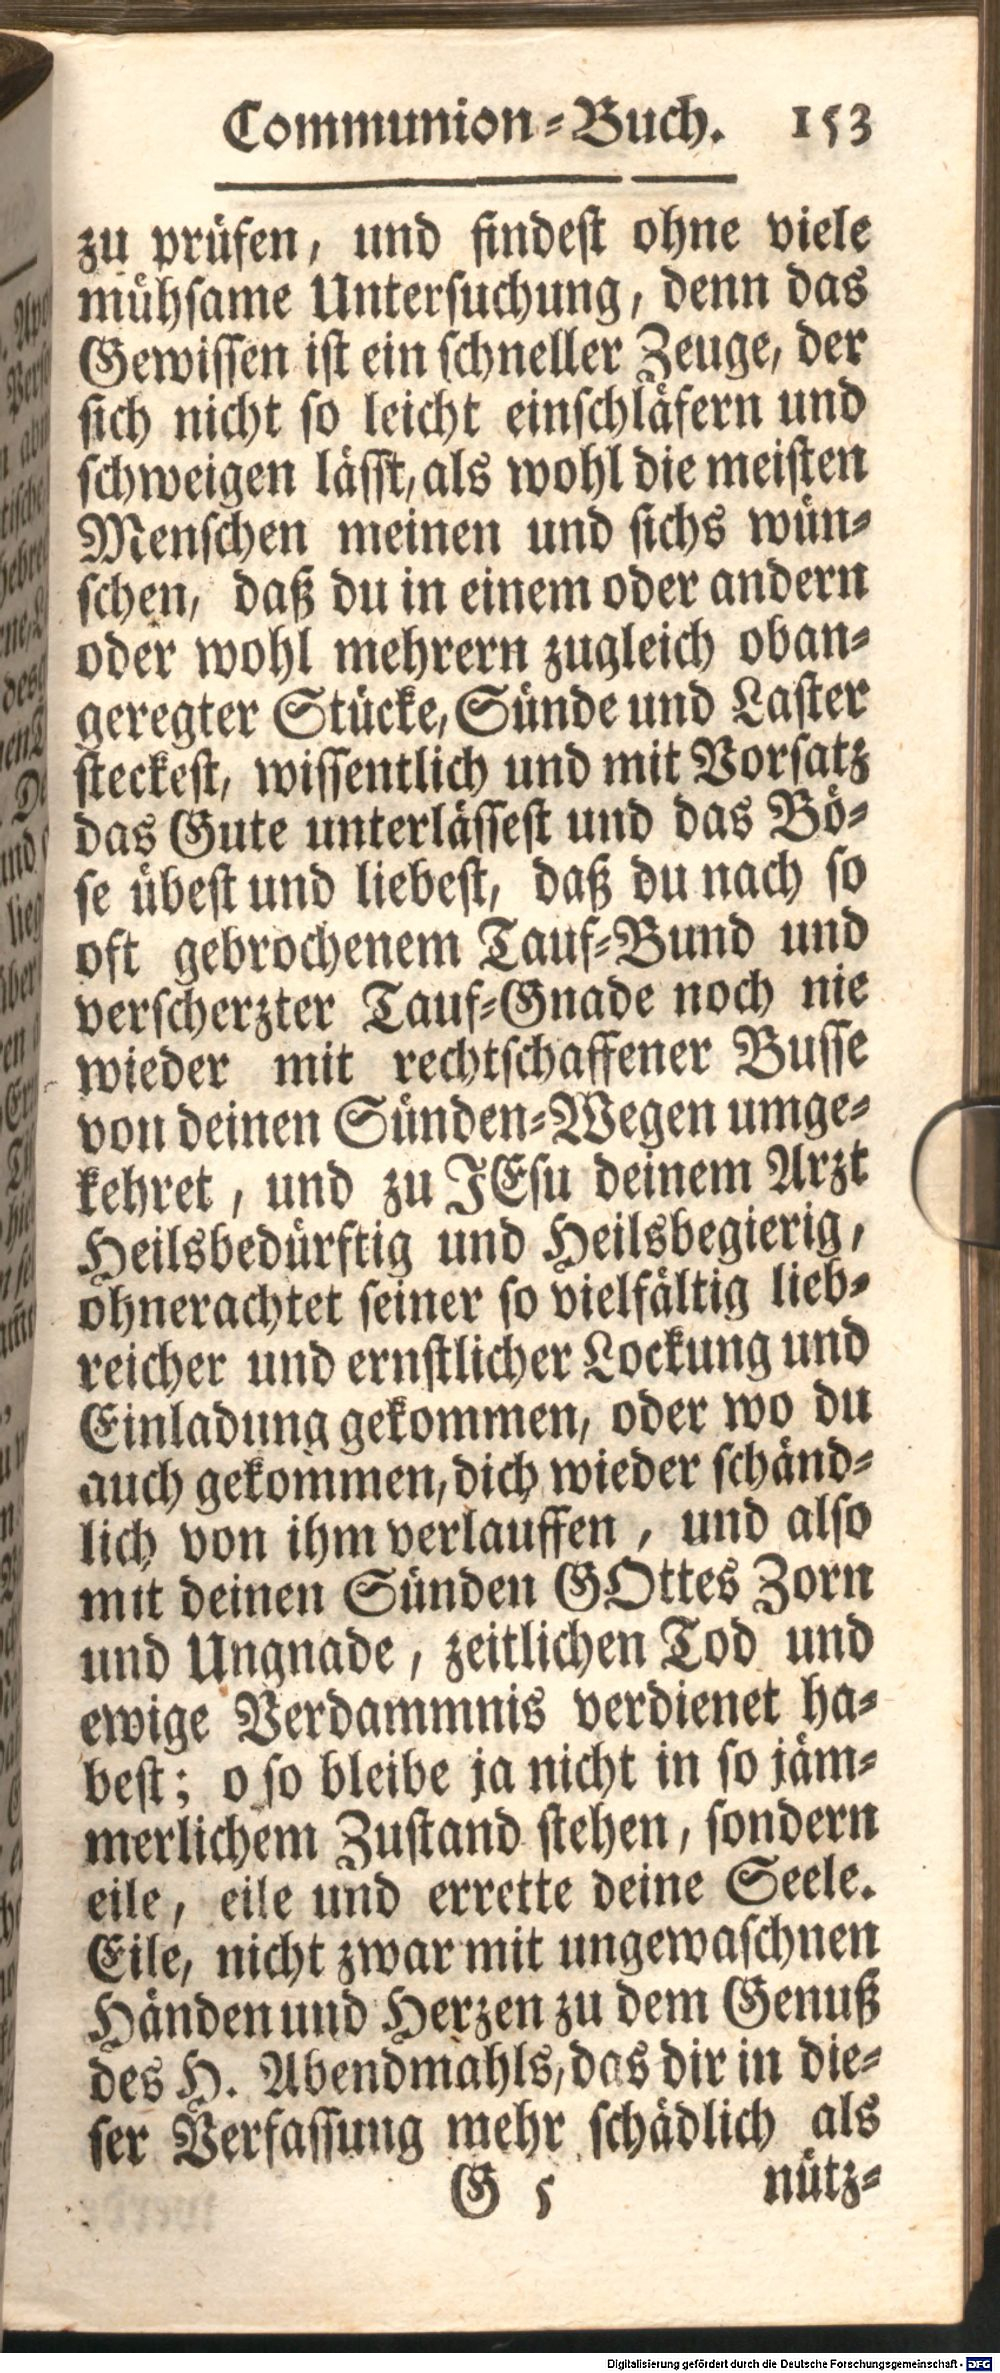 Communion-Buch. 153
zu prüfen, und findest ohne viele
mühsame Untersuchung, denn das
Gewissen ist ein schneller Zeuge, der
sich nicht so leicht einschläfern und
schweigen lässt, als wohl die meisten
Menschen meinen und sichs wün-
schen, daß du in einem oder andern
oder wohl mehrern zugleich oban-
geregter Stücke, Sünde und Laster
steckest, wissentlich und mit Vorsatz
das Gute unterlässest und das Bö-
se übest und liebest, daß du nach so
oft gebrochenem Tauf-Bund und
verscherzter Tauf-Gnade noch nie
wieder mit rechtschaffener Busse
von deinen Sünden-Wegen umge-
kehret, und zu JEsu deinem Arzt
Heilsbedürftig und Heilsbegierig,
ohnerachtet seiner so vielfältig lieb-
reicher und ernstlicher Lockung und
Einladung gekommen, oder wo du
auch gekommen, dich wieder schänd-
lich von ihm verlauffen, und also
mit deinen Sünden GOttes Zorn
und Ungnade, zeitlichen Tod und
ewige Verdammnis verdienet ha-
best; o so bleibe ja nicht in so jäm-
merlichem Zustand stehen, sondern
eile, eile und errette deine Seele.
Eile, nicht zwar mit ungewaschnen
Händen und Herzen zu dem Genuß
des H. Abendmahls, das dir in die-
ser Verfassung mehr schädlich als
G 5 nütz-
Digitalisierung gefördert durch die Deutsche Forschungsgemeinschaft - DFG